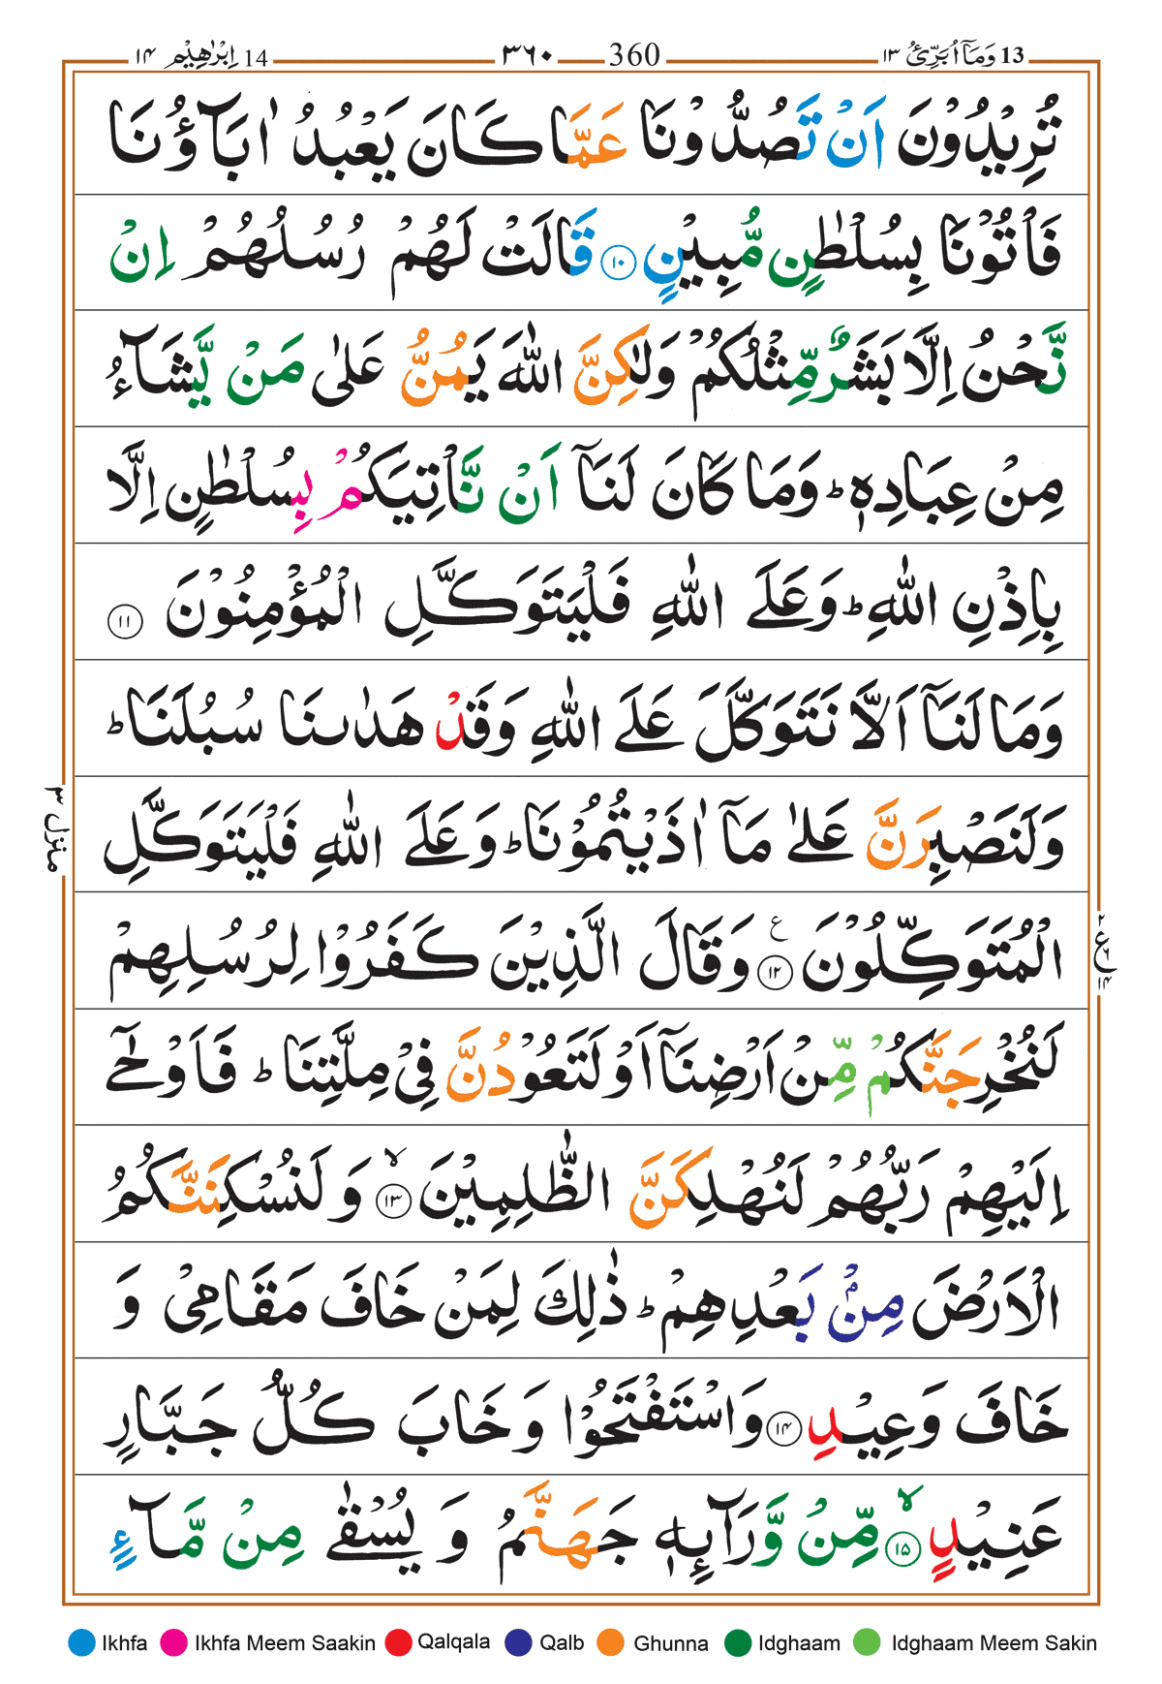 13 وَمَآ اُبَرِّئُ ١٣ 360 ٣٦٠ 14 اِبْرٰهِيْم ١٤
تُرِيْدُوْنَ اَنْ تَصُدُّوْنَا عَمَّا كَانَ يَعْبُدُ اٰبَآؤُنَا
فَاْتُوْنَا بِسُلْطٰنٍ مُّبِيْنٍ ١٠ قَالَتْ لَهُمْ رُسُلُهُمْ اِنْ
نَّحْنُ اِلَّا بَشَرٌ مِّثْلُكُمْ وَلٰكِنَّ اللّٰهَ يَمُنُّ عَلٰى مَنْ يَّشَآءُ
مِنْ عِبَادِهٖ ؕ وَمَا كَانَ لَنَآ اَنْ نَّاْتِيَكُمْ بِسُلْطٰنٍ اِلَّا
بِاِذْنِ اللّٰهِ ؕ وَعَلَى اللّٰهِ فَلْيَتَوَكَّلِ الْمُؤْمِنُوْنَ ١١
وَمَا لَنَآ اَلَّا نَتَوَكَّلَ عَلَى اللّٰهِ وَقَدْ هَدٰىنَا سُبُلَنَا ؕ
وَلَنَصْبِرَنَّ عَلٰى مَآ اٰذَيْتُمُوْنَا ؕ وَعَلَى اللّٰهِ فَلْيَتَوَكَّلِ
الْمُتَوَكِّلُوْنَ ١٢ ع وَقَالَ الَّذِيْنَ كَفَرُوْا لِرُسُلِهِمْ
لَنُخْرِجَنَّكُمْ مِّنْ اَرْضِنَآ اَوْ لَتَعُوْدُنَّ فِيْ مِلَّتِنَا ؕ فَاَوْحٰٓى
اِلَيْهِمْ رَبُّهُمْ لَنُهْلِكَنَّ الظّٰلِمِيْنَ ١٣ ۙ وَ لَنُسْكِنَنَّكُمُ
الْاَرْضَ مِنْۢ بَعْدِهِمْ ؕ ذٰلِكَ لِمَنْ خَافَ مَقَامِيْ وَ
خَافَ وَعِيْدِ ١٤ وَاسْتَفْتَحُوْا وَخَابَ كُلُّ جَبَّارٍ
عَنِيْدٍ ١٥ ۙ مِّنْ وَّرَآئِهٖ جَهَنَّمُ وَ يُسْقٰى مِنْ مَّآءٍ
منزل ٣
٢ ع ١٤
Ikhfa Ikhfa Meem Saakin Qalqala Qalb Ghunna Idghaam Idghaam Meem Sakin